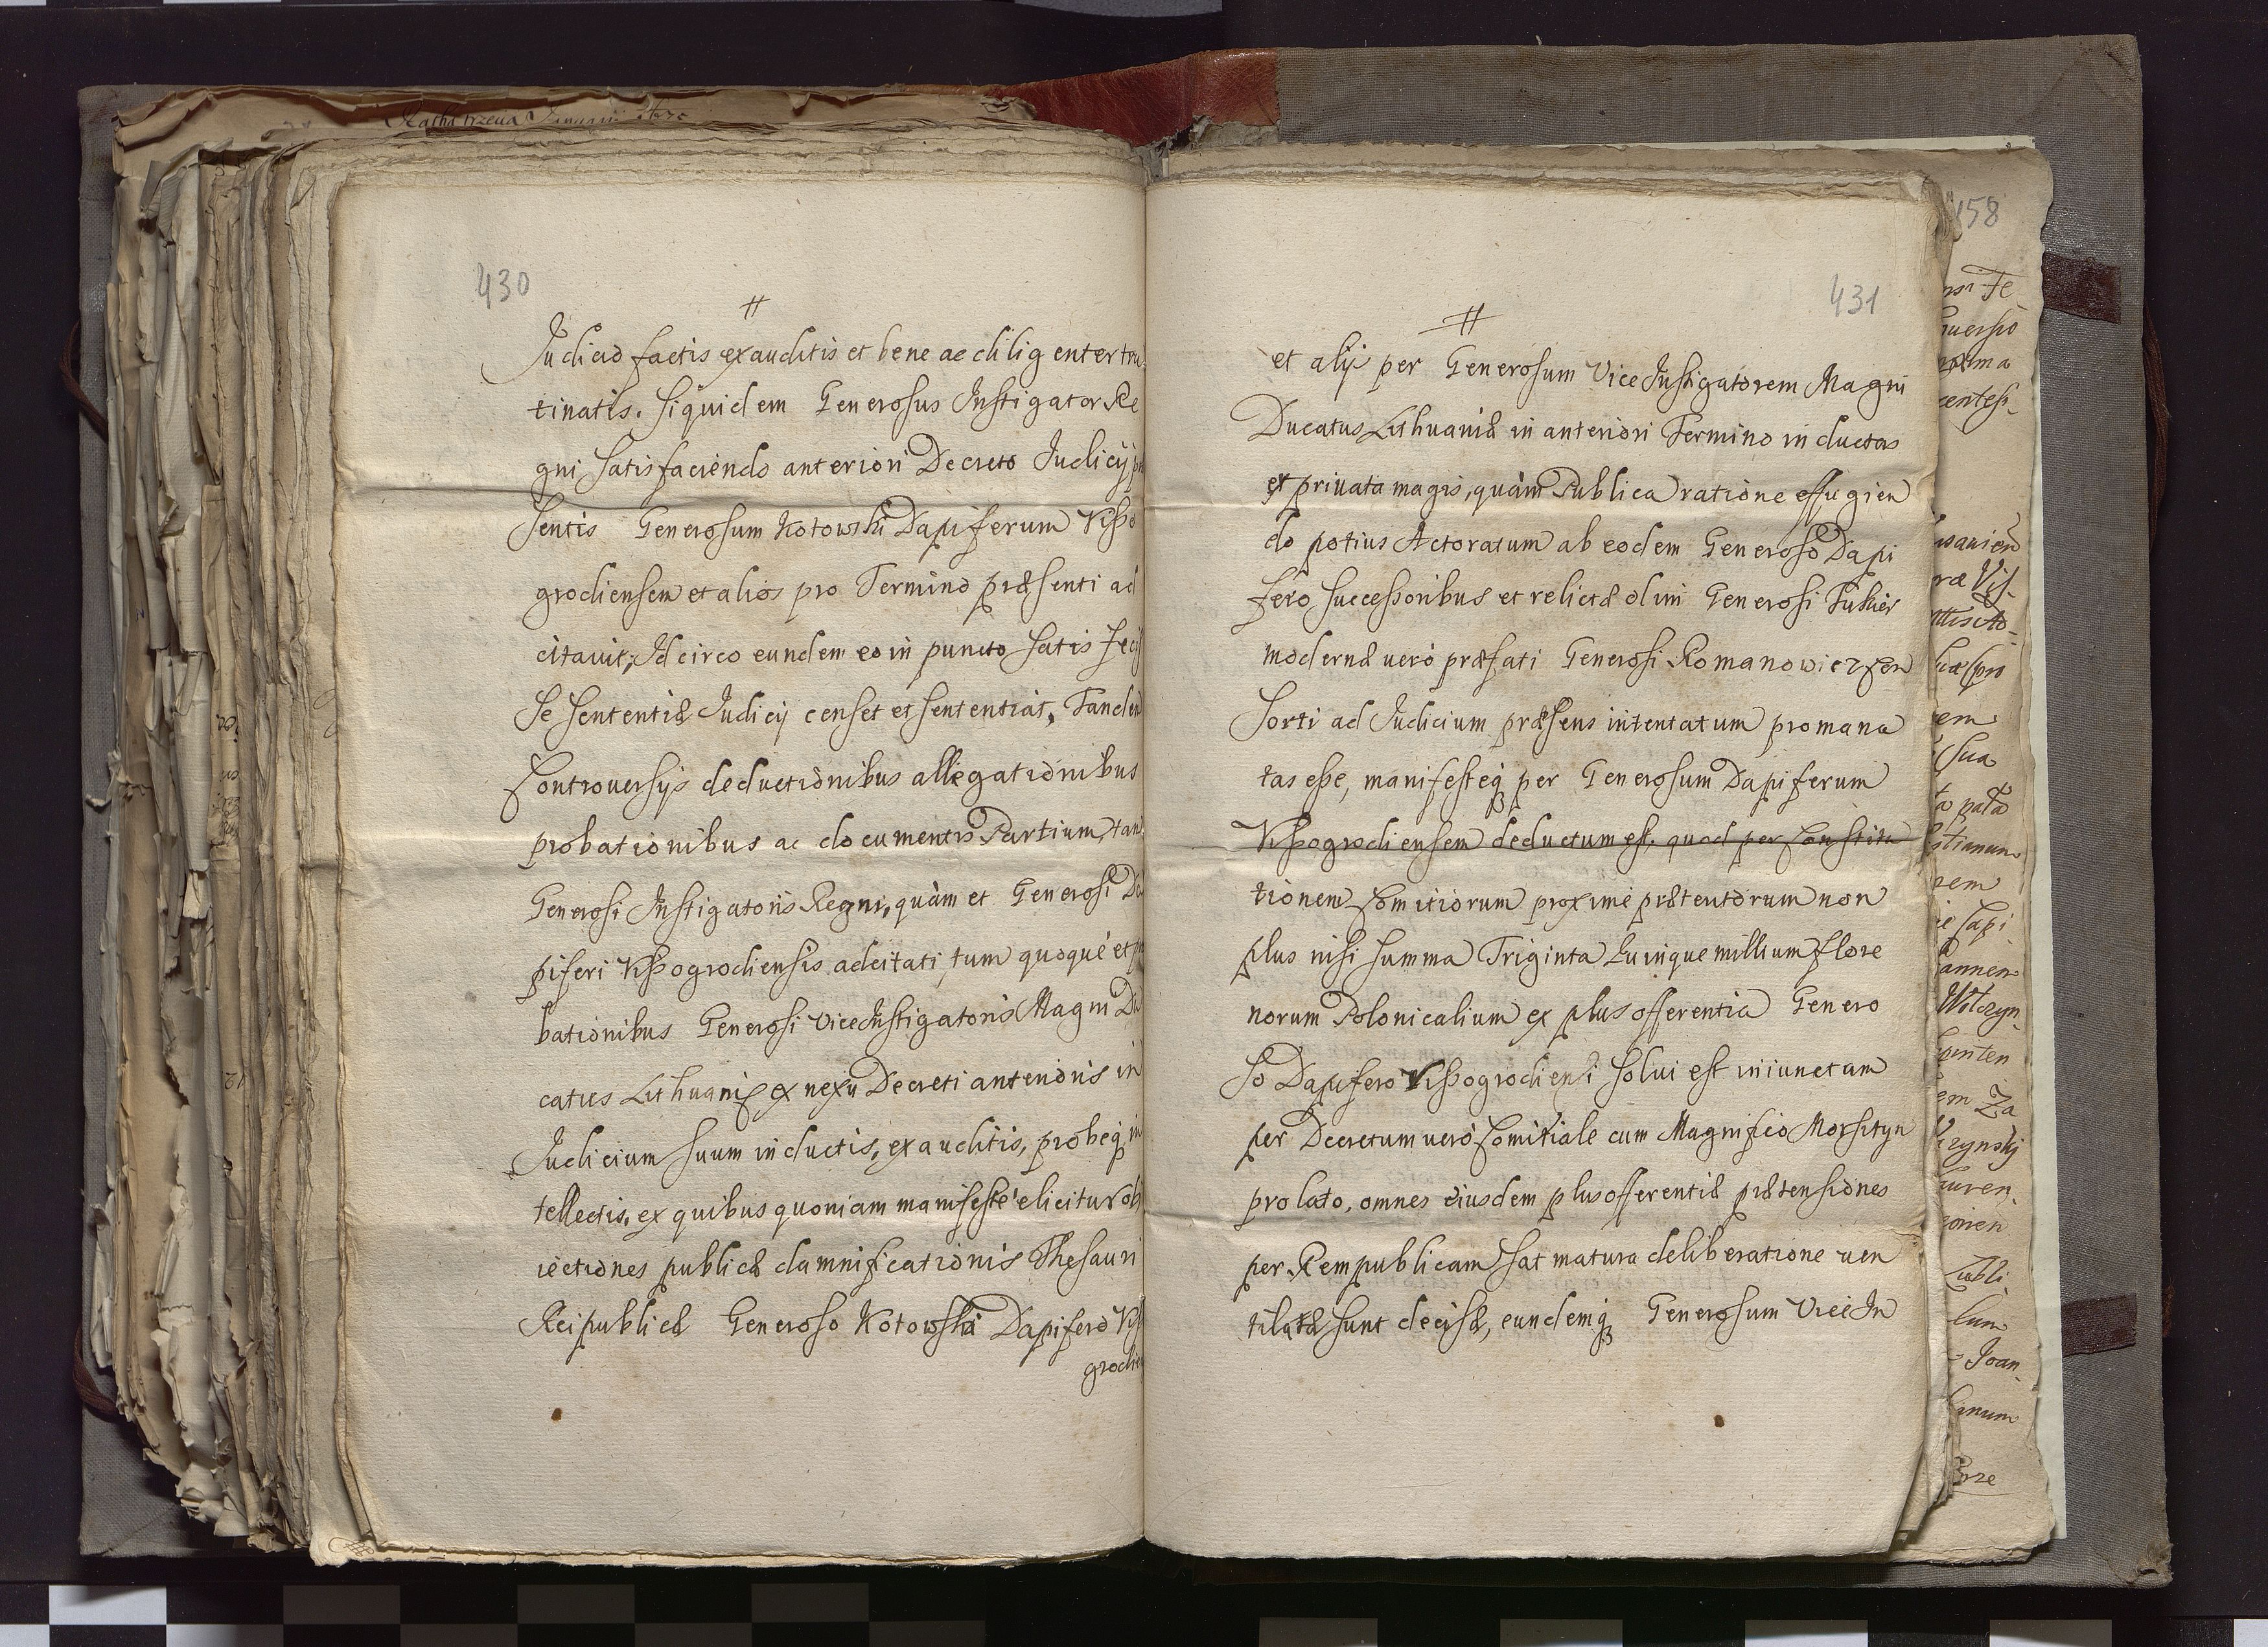 430
Judicio factis exauditis et bene ac diligenter tru
tinatis. siquidem Generosus Instigator Re
gni satisfaciendo anteriori Decreto Judicij præ
sentis Generosum Kotowski Dapiferum Visso
grodiensem et alios pro Termino præsenti ad
citauit; Idcirco eundem eo in puncto satis fecis
se sententiæ Judicij censet et sententiat. Tandem
Controuersijs deductionibus allegationibus
probationibus ac documentis Partium, tam
Generosi Instigatoris Regni, quàm et Generosi Da
piferi Vissogrodiensis adcitati, tum quoque et pro
bationibus Generosi Vice Instigatoris Magni Du
catus Lithuaniæ ex nexu Decreti anterioris in
Judicium suum inductis, exauditis, probeq in
tellectis. ex quibus quoniam manifestè elicitur ob
iectiones publicæ damnificationis Thesauri
Reipublicæ Generoso Kotowski Dapifero Vis
grodien
431
et alij per Generosum Vice Instigatorem Magni
Ducatus Lithuaniæ in anteriori Termino inductas
ex priuata magis, quàm Publica ratione effugien
do potius Actoratum ab eodem Generoso Dapi
fero successoribus et relictæ olim Generosi Fukier
modernæ uerò præfati Generosi Romanowicz con
sorti ad Judicium præsens intentatum promana
tas esse, manifesteq per Generosum Dapiferum
Vissogrodiensem deductum est, quod per Constitu
tionem Comitiorum proximè prætentorum non
plus nisi summa Triginta Quinque millium flore
norum Polonicalium ex plus offerentia Genero
so Dapifero Vissogrodiensi solui est iniunctam
per Decretum uerò Comitiale cum Magnifico Morsztyn
prolato, omnes eiusdem plus offerentiæ prætensiones
per Rempublicam sat matura deliberatione uen
tilatæ sunt decisæ, eundemq Generosum Vice In
158